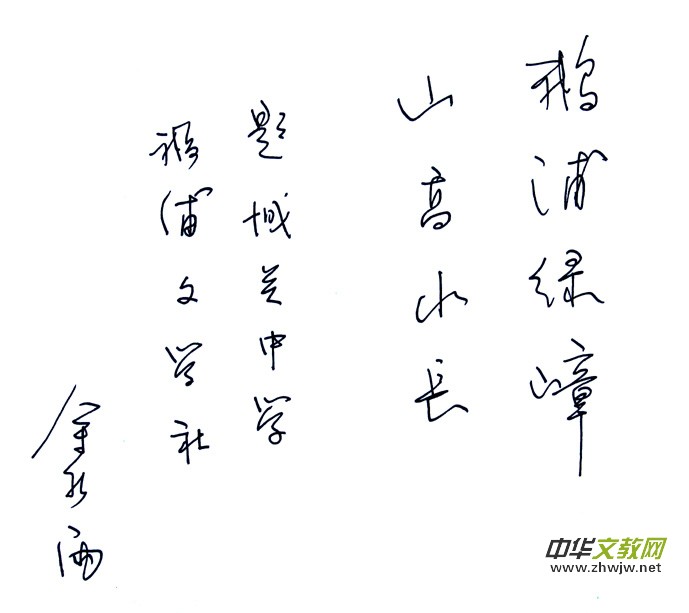 鹅浦绿嶂
山高水長
题城关中学
浦文学社
中华文教网
www.zhwjw.net